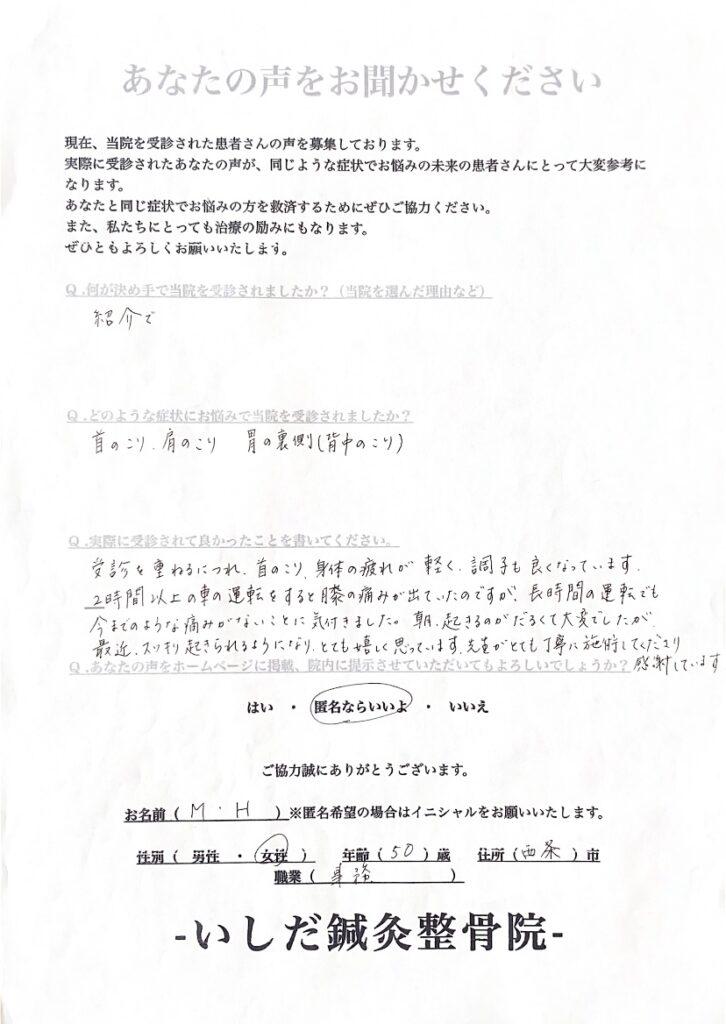 あなたの声をお聞かせください
現在、当院を受診された患者さんの声を募集しております。
実際に受診されたあなたの声が、同じような症状でお悩みの未来の患者さんにとって大変参考に
なります。
あなたと同じ症状でお悩みの方を救済するためにぜひご協力ください。
また、私たちにとっても治療の励みにもなります。
ぜひともよろしくお願いいたします。
Q.何が決め手で当院を受診されましたか？（当院を選んだ理由など）
紹介で
Q.どのような症状にお悩みで当院を受診されましたか？
首のこり、肩のこり 胃の裏側(背中のこり)
Q.実際に受診されて良かったことを書いてください。
受診を重ねるにつれ、首のこり、身体の疲れが軽く、調子も良くなっています。
2時間以上の車の運転をすると膝の痛みが出ていたのですが、長時間の運転でも
今までのような痛みがないことに気付きました。朝、起きるのがだるくて大変でしたが、
最近、スッキリ起きられるようになり、とても嬉しく思っています。先生がとても丁寧に施術してくださり
感謝しています
Q.あなたの声をホームページに掲載、院内に提示させていただいてもよろしいでしょうか？
はい ・ 匿名ならいいよ ・ いいえ
ご協力誠にありがとうございます。
お名前（ M・H ）※匿名希望の場合はイニシャルをお願いいたします。
性別（ 男性 ・ 女性 ） 年齢（50）歳 住所（西条）市
職業（ 事務 ）
-いしだ鍼灸整骨院-